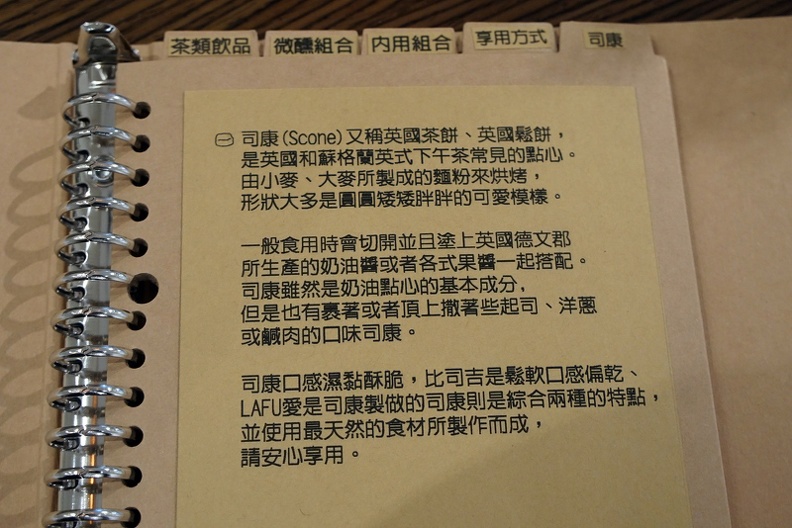 茶類飲品 微醺組合 內用組合 享用方式 司康
司康(Scone)又稱英國茶餅、英國鬆餅，
是英國和蘇格蘭英式下午茶常見的點心。
由小麥、大麥所製成的麵粉來烘烤，
形狀大多是圓圓矮矮胖胖的可愛模樣。
一般食用時會切開並且塗上英國德文郡
所生產的奶油醬或者各式果醬一起搭配。
司康雖然是奶油點心的基本成分，
但是也有裹著或者頂上撒著些起司、洋蔥
或鹹肉的口味司康。
司康口感濕黏酥脆，比司吉是鬆軟口感偏乾、
LAFU愛是司康製做的司康則是綜合兩種的特點，
並使用最天然的食材所製作而成，
請安心享用。